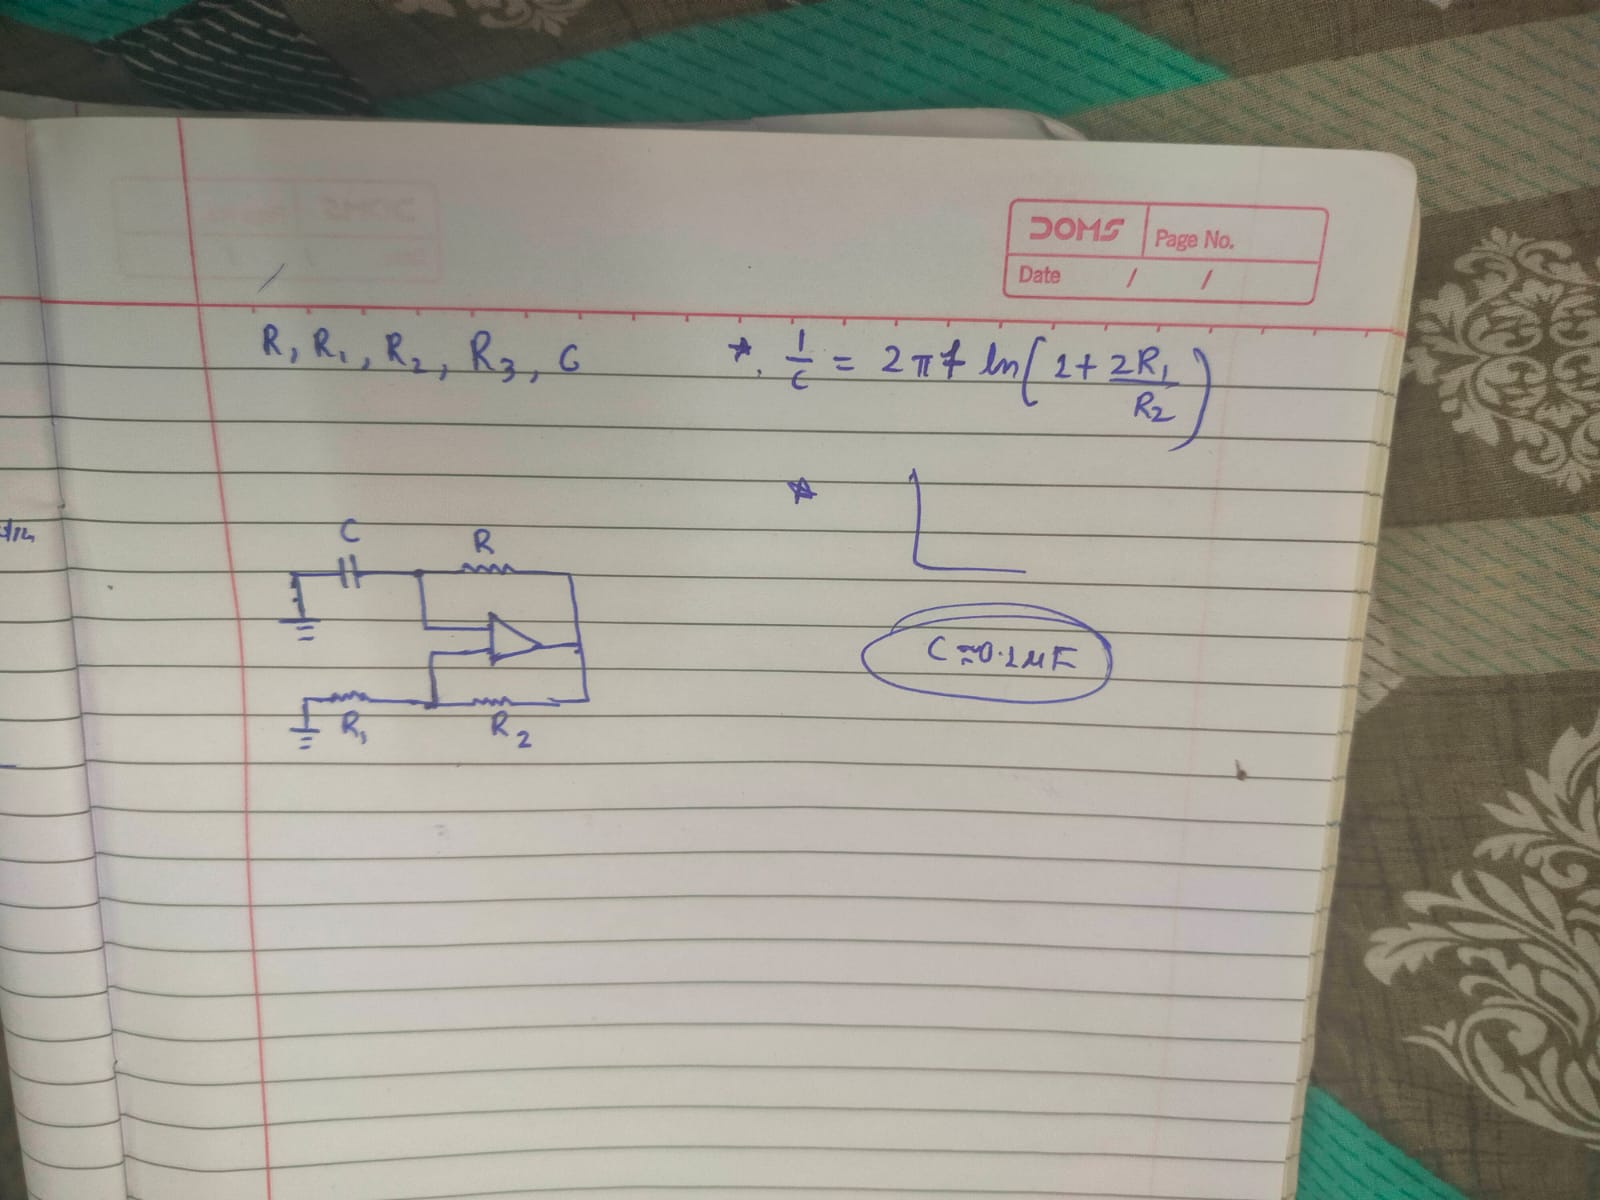 DOMS
Page No.
Date / /
R, R₁, R₂, R₃, C
*. 1/c = 2πf ln(1 + 2R₁/R₂)
C
R
R₁
R₂
C≈0.1μF